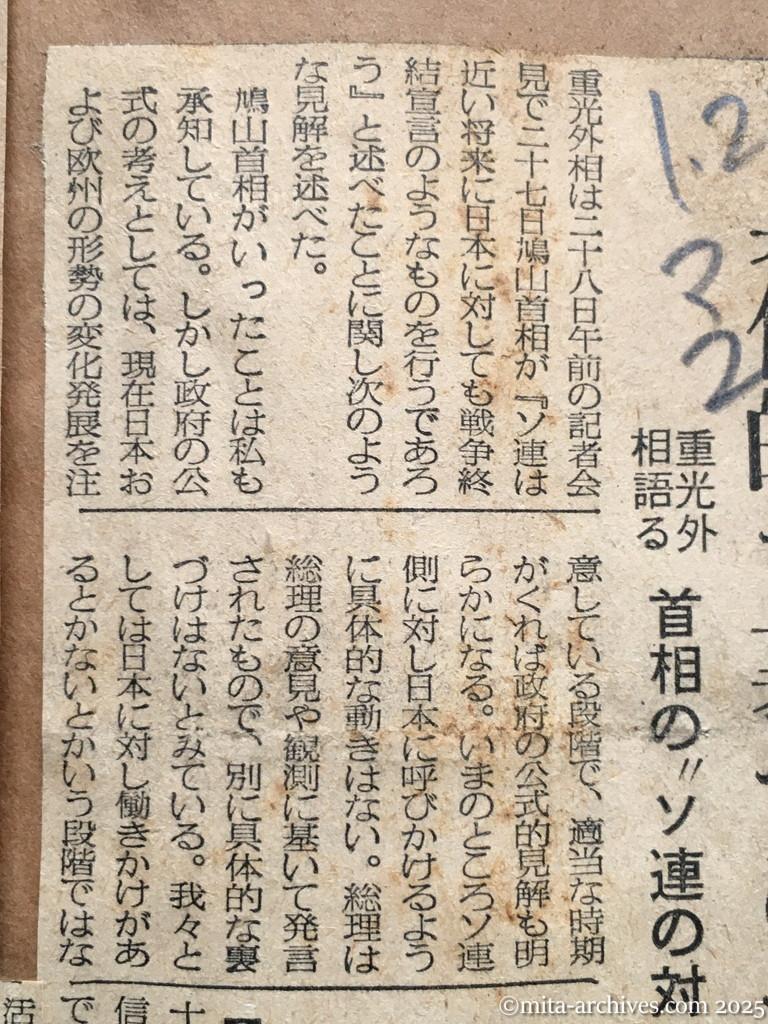 1.2
3
2
重光外
相語る
首相の〃ソ連の対
重光外相は二十八日午前の記者会
見で二十七日鳩山首相が『ソ連は
近い将来に日本に対しても戦争終
結宣言のようなものを行うであろ
う』と述べたことに関し次のよう
な見解を述べた。
鳩山首相がいったことは私も
承知している。しかし政府の公
式の考えとしては、現在日本お
よび欧州の形勢の変化発展を注
意している段階で、適当な時期
がくれば政府の公式的見解も明
らかになる。いまのところソ連
側に対し日本に呼びかけるよう
に具体的な動きはない。総理は
総理の意見や観測に基いて発言
されたもので、別に具体的な裏
づけはないとみている。我々と
しては日本に対し働きかけがあ
るとかないとかいう段階ではな
十
信
で
活
©mita-archives.com 2025